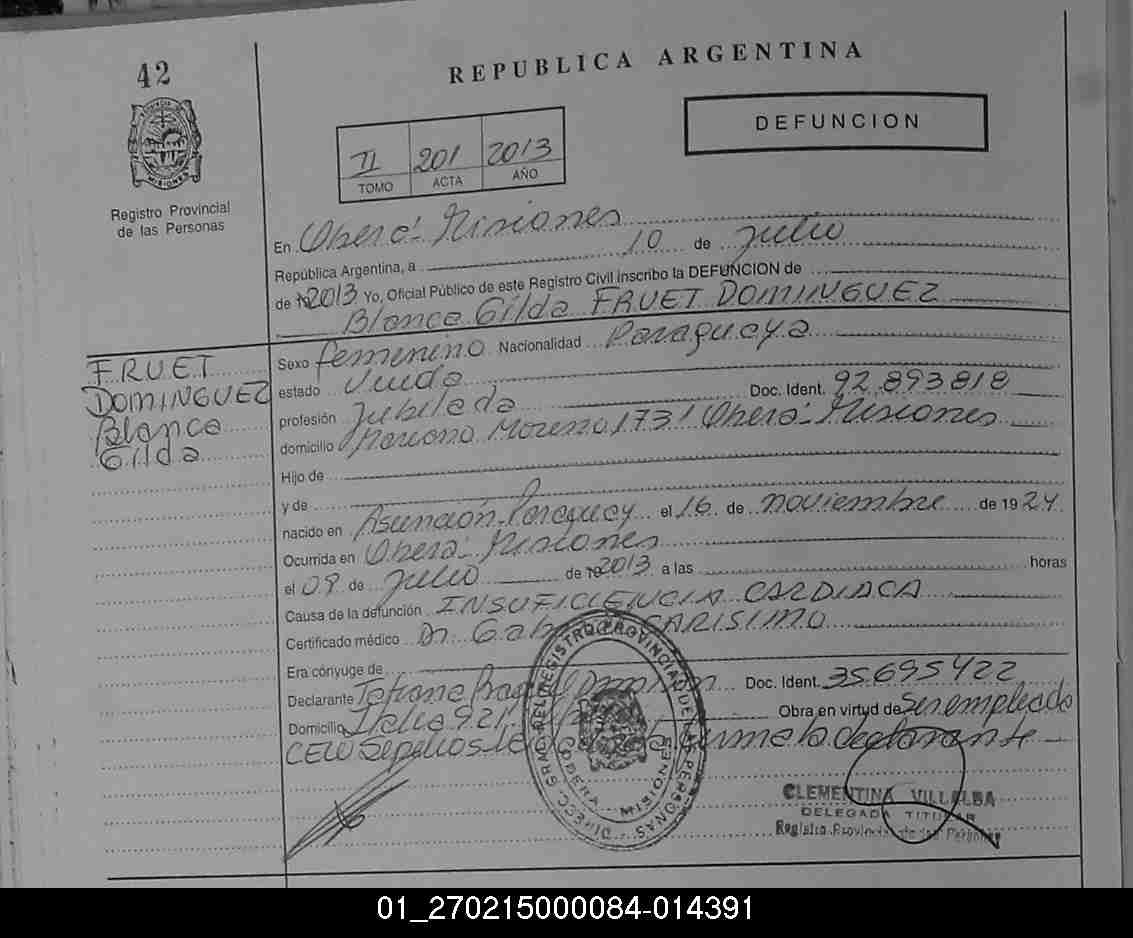 42
REPUBLICA ARGENTINA
DEFUNCION
II 201 2013
TOMO ACTA AÑO
MISIONES
Registro Provincial
de las Personas
En Oberá - Misiones
República Argentina, a 10 de Julio
de 2013 Yo, Oficial Público de este Registro Civil inscribo la DEFUNCION de
Blanca Gilda FRUET DOMINGUEZ
FRUET
DOMINGUEZ
Blanca
Gilda
Sexo femenino Nacionalidad Paraguaya
estado Viuda Doc. Ident. 92.893818
profesión Jubilada
domicilio Mariano Moreno 1731 Oberá - Misiones
Hijo de
y de
nacido en Asunción - Paraguay el 16 de noviembre de 1924
Ocurrida en Oberá - Misiones
el 09 de Julio de 2013 a las horas
Causa de la defunción INSUFICIENCIA CARDIACA
Certificado médico Dr. CARISIMO
Era cónyuge de
Declarante Tatiana Doc. Ident. 35695422
Domicilio Italia 921 Obra en virtud de Ser empleado
CELO Sepelios firma la declarante
DIREC. GRAL. DEL REGISTRO PROVINCIAL DE LAS PERSONAS
MISIONES
CLEMENTINA VILLALBA
DELEGADA TITULAR
Registro Provincial de las Personas
01_270215000084-014391